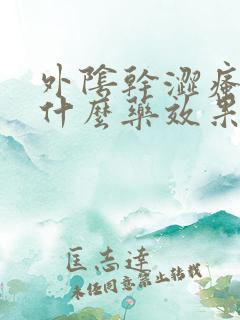 外陰幹澀瘙
什麼藥效果
匡志達
未經同意禁止轉載